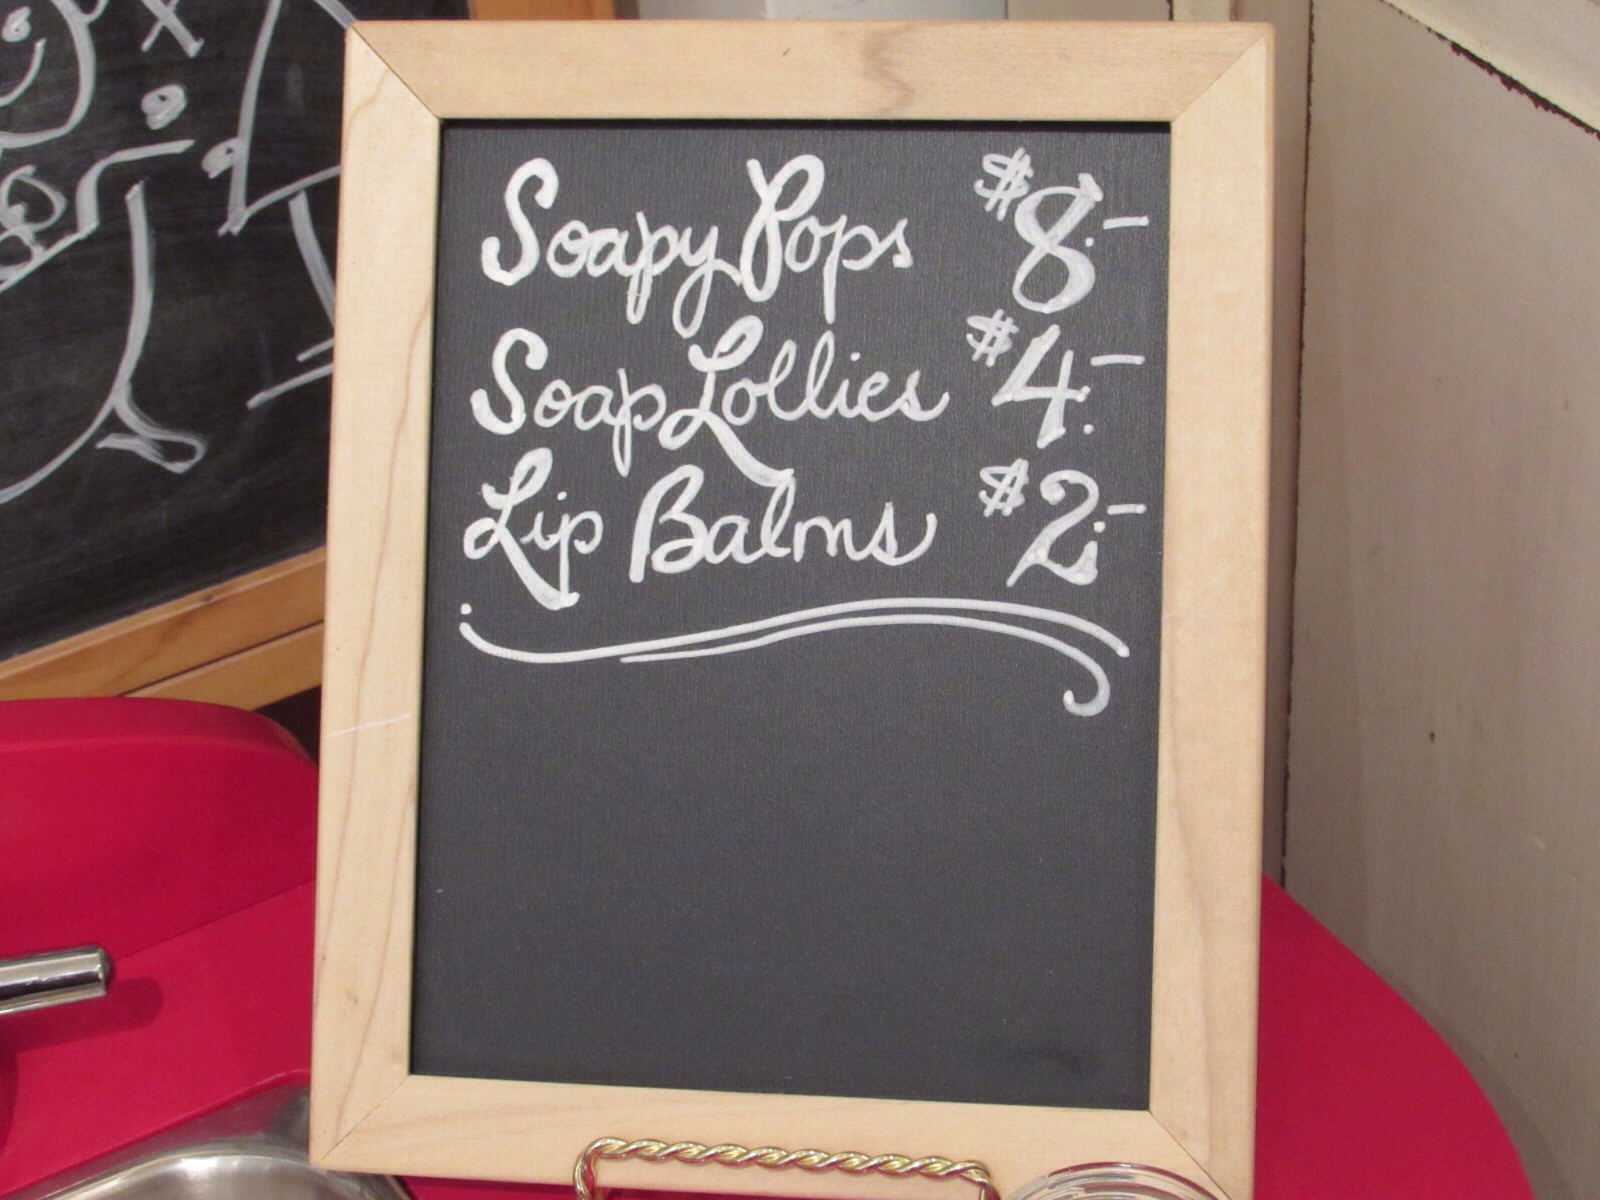 Soapy Pops $8.-
Soap Lollies $4.-
Lip Balms $2.-